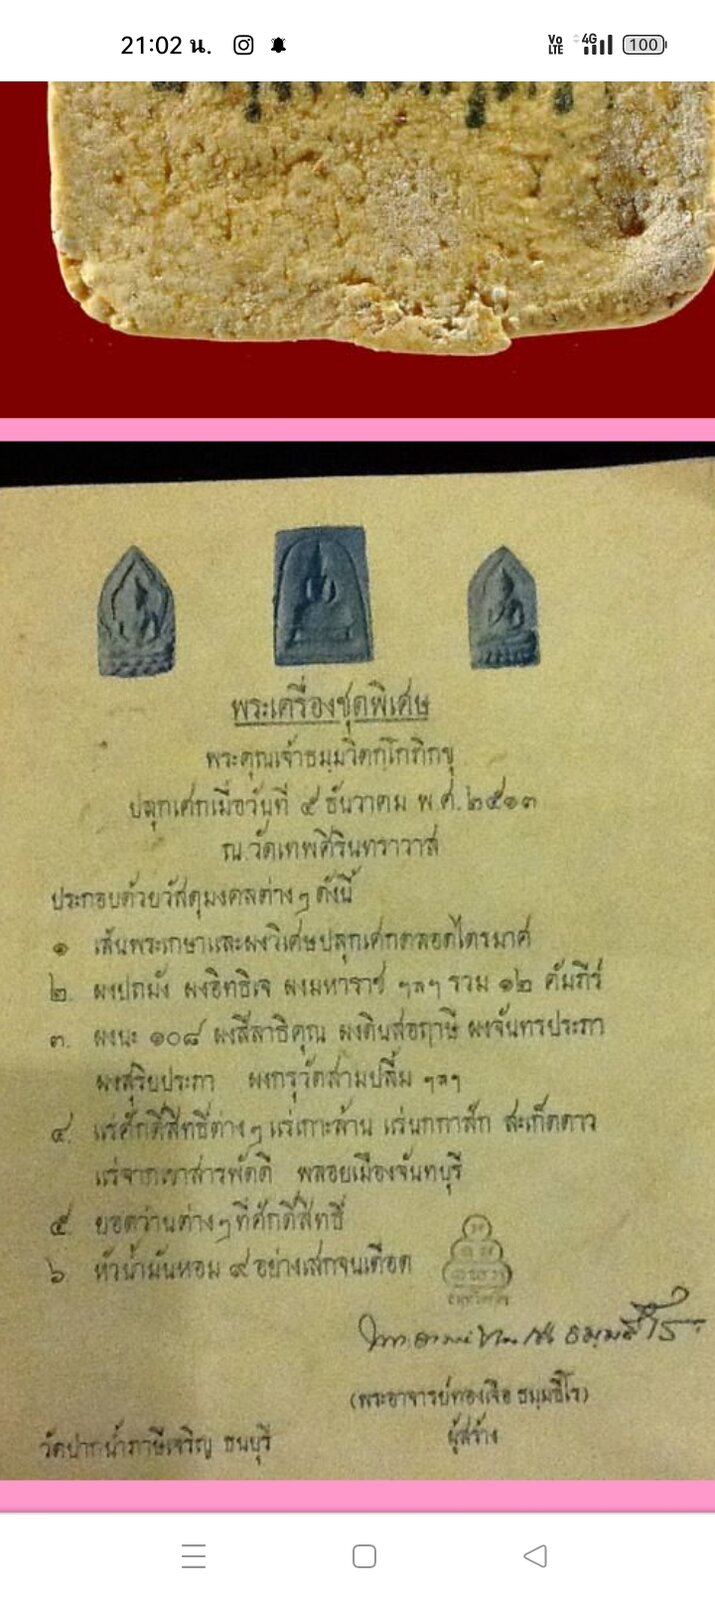 21:02 น.
Vo LTE 4G 100
พระเครื่องชุดพิเศษ
พระคุณเจ้าธมฺมวิตกฺโกภิกขุ
ปลุกเศกเมื่อวันที่ ๕ ธันวาคม พ.ศ.๒๕๑๓
ณ.วัดเทพศิรินทราวาส
ประกอบด้วยวัสดุมงคลต่างๆดังนี้
๑ เส้นพระเกษาและผงวิเศษปลุกเศกตลอดไตรมาศ
๒. ผงปถมัง ผงอิทธิเจ ผงมหาราช ฯลฯ รวม ๑๒ คัมภีร์
๓. ผงนะ ๑๐๘ ผงสีลาธิคุณ ผงดินสอฤาษี ผงจันทรประภา
ผงสุริยประภา ผงกรุวัดสามปลื้ม ฯลฯ
๔. แร่ศักดิ์สิทธิ์ต่างๆ แร่เกาะล้าน แร่นกกาสัก สะเก็ดดาว
แร่จากเขาสารพัดดี พลอยเมืองจันทบุรี
๕ ยอดว่านต่างๆที่ศักดิ์สิทธิ์
๖ หัวน้ำมันหอม ๙ อย่างเสกจนเดือด
ธมฺมธีโร
(พระอาจารย์ทองเจือ ธมฺมธีโร)
ผู้สร้าง
วัดปากน้ำภาษีเจริญ ธนบุรี